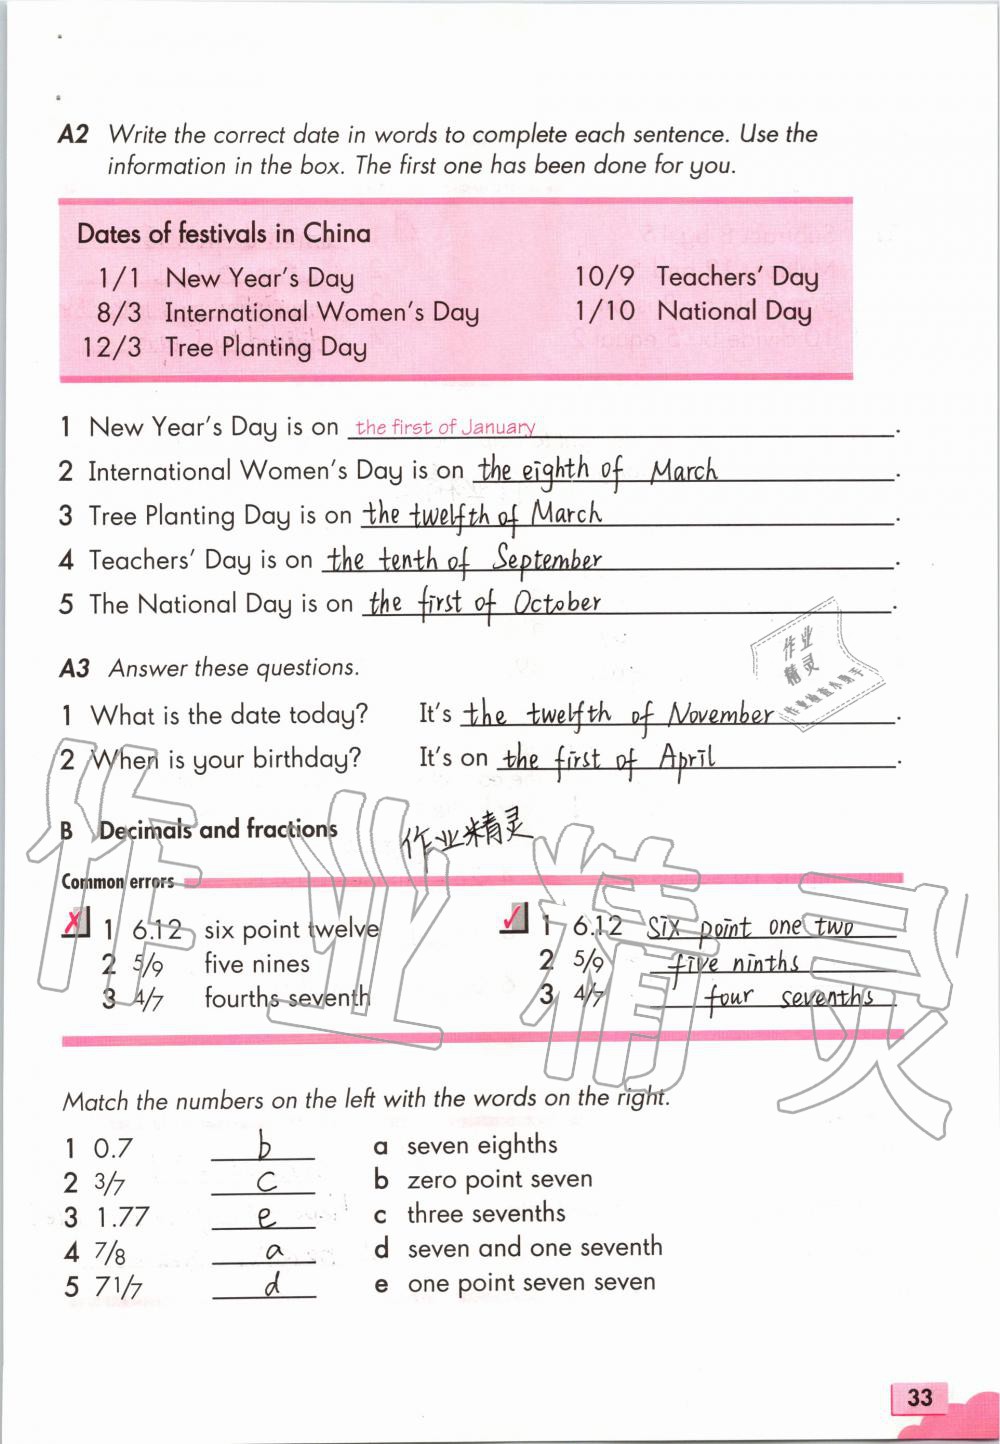 A2 Write the correct date in words to complete each sentence. Use the
information in the box. The first one has been done for you.
Dates of festivals in China
1/1 New Year's Day 10/9 Teachers' Day
8/3 International Women's Day 1/10 National Day
12/3 Tree Planting Day
1 New Year's Day is on the first of January.
2 International Women's Day is on the eighth of March.
3 Tree Planting Day is on the twelfth of March.
4 Teachers' Day is on the tenth of September.
5 The National Day is on the first of October.
A3 Answer these questions.
1 What is the date today? It's the twelfth of November.
2 When is your birthday? It's on the first of April.
作业
精灵
B Decimals and fractions
作业精灵
Common errors
✗ 1 6.12 six point twelve ✓ 1 6.12 six point one two
2 5/9 five nines 2 5/9 five ninths
3 4/7 fourths seventh 3 4/7 four sevenths
作业精灵
Match the numbers on the left with the words on the right.
1 0.7 b a seven eighths
2 3/7 c b zero point seven
3 1.77 e c three sevenths
4 7/8 a d seven and one seventh
5 71/7 d e one point seven seven
33